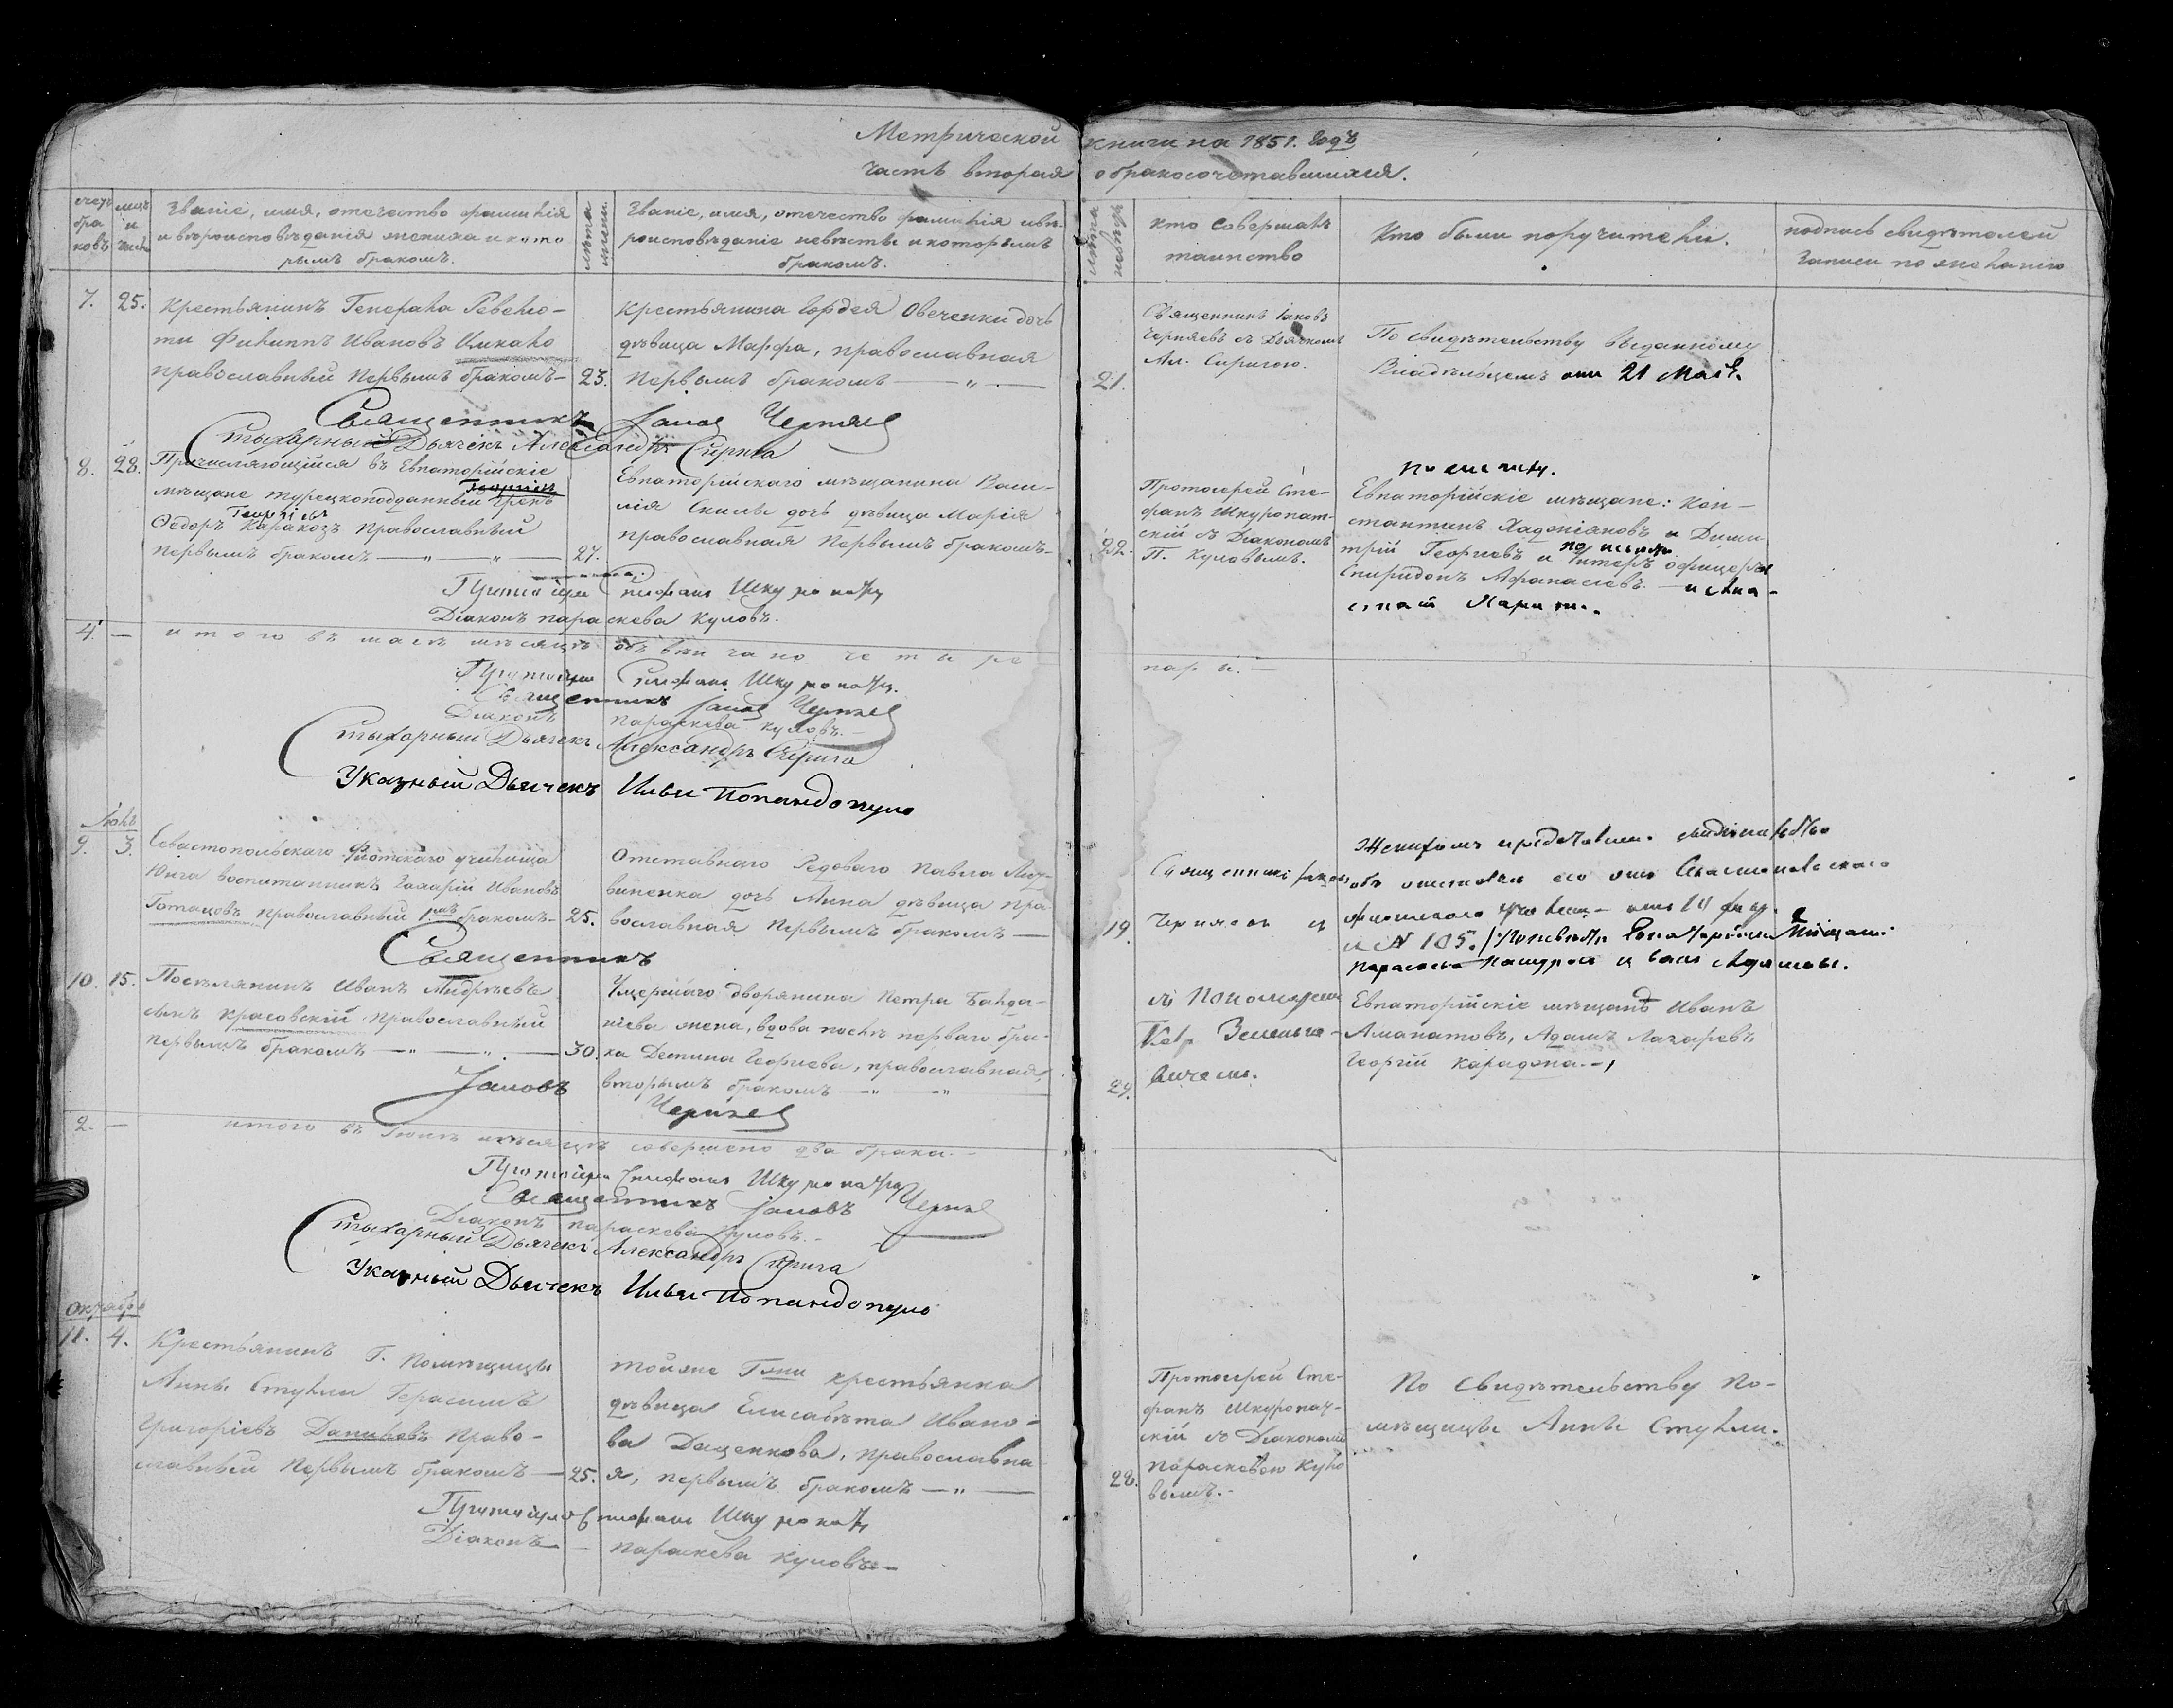 Метрической книги на 1851. годъ
часть вторая о бракосочетавшихся.
счетъ бра ковъ
мѣць и число
Званіе, имя, отечество фамилія
и вѣроисповѣданія жениха и кото
рымъ бракомъ.
лѣта жених.
Званіе, имя, отечество фамилія и вѣ-
роисповѣданіе невѣсты и которымъ
бракомъ.
лѣта невѣс.
кто совершалъ
таинство
Кто были поручители.
подпись свидѣтелей
записи по желанію
7. 25.
Крестьянинъ Генерала Ревелю-
ти Филиппъ Ивановъ Цикало
православный первымъ бракомъ— 23.
Крестьянина Гордея Овеченки дочь
дѣвица Марфа, православная
первымъ бракомъ — „ —
21.
Священникъ Іаковъ
Черняевъ съ Дьячкомъ
Ал. Сиригою.
По свидѣтельству выданному
Владѣльцемъ отъ 21 Мая.
Священникъ Іаковъ Черняев
Стыхарный Дьячекъ Александръ Сирига
8. 28.
Причисляющійся въ Евпаторійскіе
мѣщане турецкоподданный Грекъ
Георгіевъ
Ѳедоръ Каракозъ православный
первымъ бракомъ — „ — „ — 27.
Евпаторійскаго мѣщанина Васи-
лія Скилы дочь дѣвица Марія
православная первымъ бракомъ—
22.
Протоіерей Сте-
фанъ Шкуропат-
скій съ Діакономъ
П. Куловымъ.
Евпаторійскіе мѣщане: Кон-
стантинъ Хаджіяновъ и Дими
трій Георгіевъ и Унтеръ офицеры
Спиридонъ Афанасіевъ — и Ана-
Протоіерей Стефанъ Шкуропатц
Діаконъ параскева Куловъ.
4. — итого въ маѣ мѣсяцѣ обвѣнчано четыре пары. —
Протоіерей Стефанъ Шкуропатц.
Священникъ Іаковъ Черняев
Діаконъ Параскева Куловъ. —
Стыхарный Дьячекъ Александръ Сирига
Указный Дьячекъ Илья Попандопуло
Іюнь
9. 3.
Севастопольскаго Флотскаго училища
Юнга воспитанникъ Захарій Ивановъ
Готацовъ православный 1мъ бракомъ— 25.
Отставнаго Редоваго Павла Лит-
виненка дочь Анна дѣвица пра-
вославная первымъ бракомъ —
19.
Священникъ Іаковъ
Черняевъ и
Женихомъ
объ его отъ Севастопольскаго
и N 105.
Священникъ
10. 15.
Поселянинъ Иванъ Андрѣевъ
сынъ Красовскій православный
первымъ бракомъ — „ — „ — 30.
Умершаго дворянина Петра Банда-
ліева жена, вдова послѣ перваго бра-
ка Деспина Георгіева, православная,
вторымъ бракомъ — „ — „
29.
съ Пономаремъ
Евпаторійскіе мѣщане Иванъ
Аманатовъ, Адамъ Лазаревъ
Георгій Карадопа. —
Іаковъ Черняев
2. — итого въ Іюнѣ мѣсяцѣ совершено два брака. —
Протоіерей Стефанъ Шкуропатц
Священникъ Іаковъ Черняев
Діаконъ параскева Куловъ. —
Стыхарный Дьячекъ Александръ Сирига
Указный Дьячекъ Илья Попандопуло
Октябрь
11. 4.
Крестьянинъ Г. Помѣщицы
Анны Стухли Герасимъ
Григоріевъ Даниловъ право-
славный первымъ бракомъ — 25.
тойже Гжи крестьянка
дѣвица Елисавѣта Ивано-
ва Даценкова, православна
я, первымъ бракомъ — „ —
22.
Протоіерей Сте-
фанъ Шкуропат-
скій съ Діакономъ
Параскевою Куло
вымъ. —
По свидѣтельству По-
мѣщицы Анны Стухли.
Протоіерей Стефанъ Шкуропатц
Діаконъ — Параскева Куловъ —